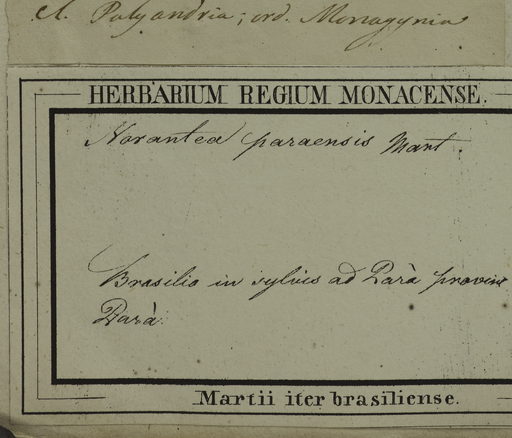 cl. Polyandria; ord. Monogynia
HERBARIUM REGIUM MONACENSE.
Norantea paraensis Mart.
Brasilia in sylvis ad Parà provinc
Parà.
Martii iter brasiliense.